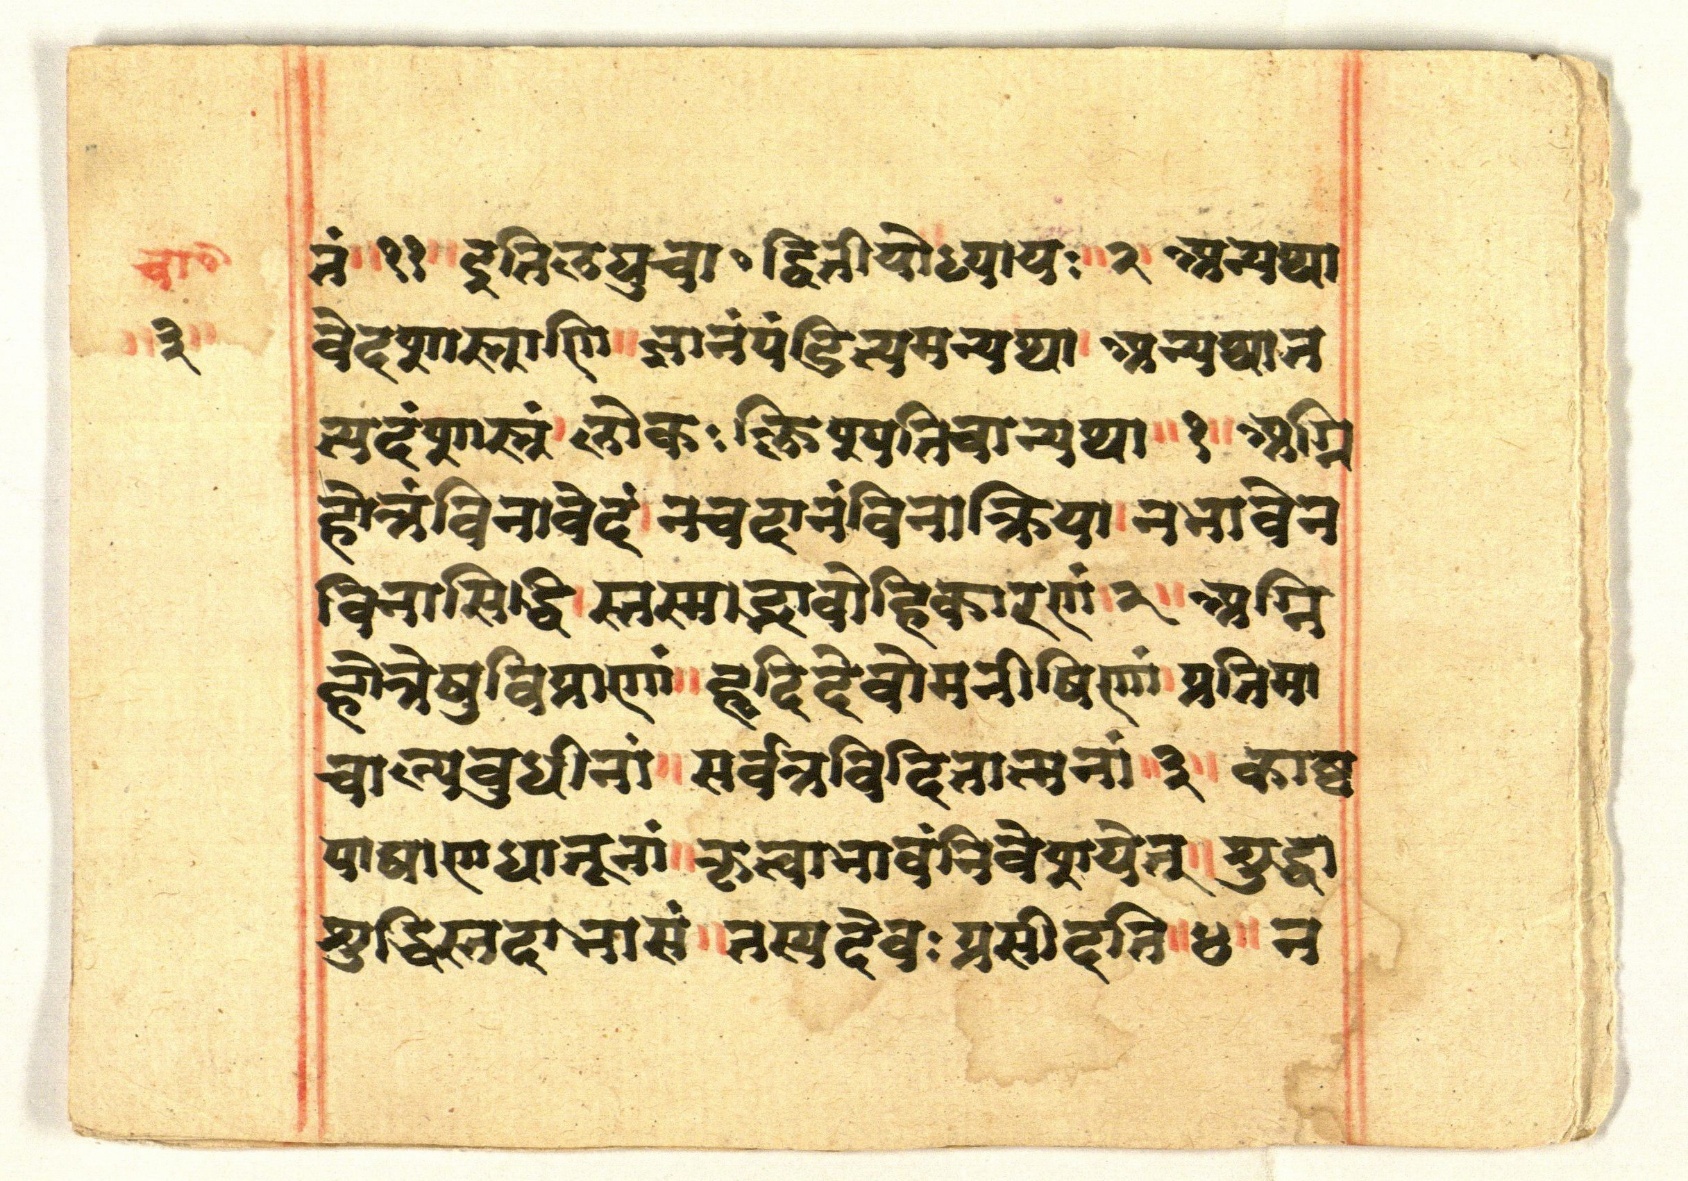 चा॰
॥३॥
तं॥११॥इतिलघुचा॰द्वितीयोध्यायः॥२अन्यथा
वेदशास्त्राणि॥ज्ञानंपंडित्यमन्यथा।अन्यथान
त्पदंशास्त्रं।लोकःक्लिशुपतिचान्यथा॥१॥अग्नि
होत्रंविनावेदं।नचदानंविनाक्रिया।नभावेन
विनासिद्धि।स्तस्माद्भावोहिकारणं॥२॥अग्नि
होत्रेषुविप्राणां॥हृदिदेवोमनीषिणां।प्रतिमा
चाल्पबुधीनां॥सर्वत्रविदितात्मनां॥३॥काष्ठ
पाषाणधातूनां॥कृत्वाभावंनिवेशयेत्॥शुद्धा
शुद्धिस्तदाभासं॥तस्यदेवःप्रसीदति॥४॥न